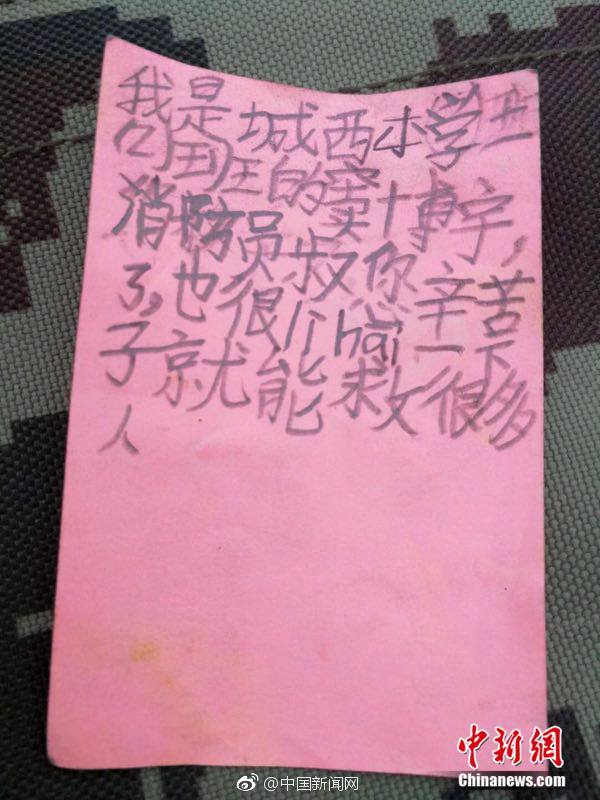 我是城西小学二
(1)班的窦博宇,
消防员叔你辛苦
了,也很hai一下
子就能救很多
人
@中国新闻网
中新網
Chinanews.com